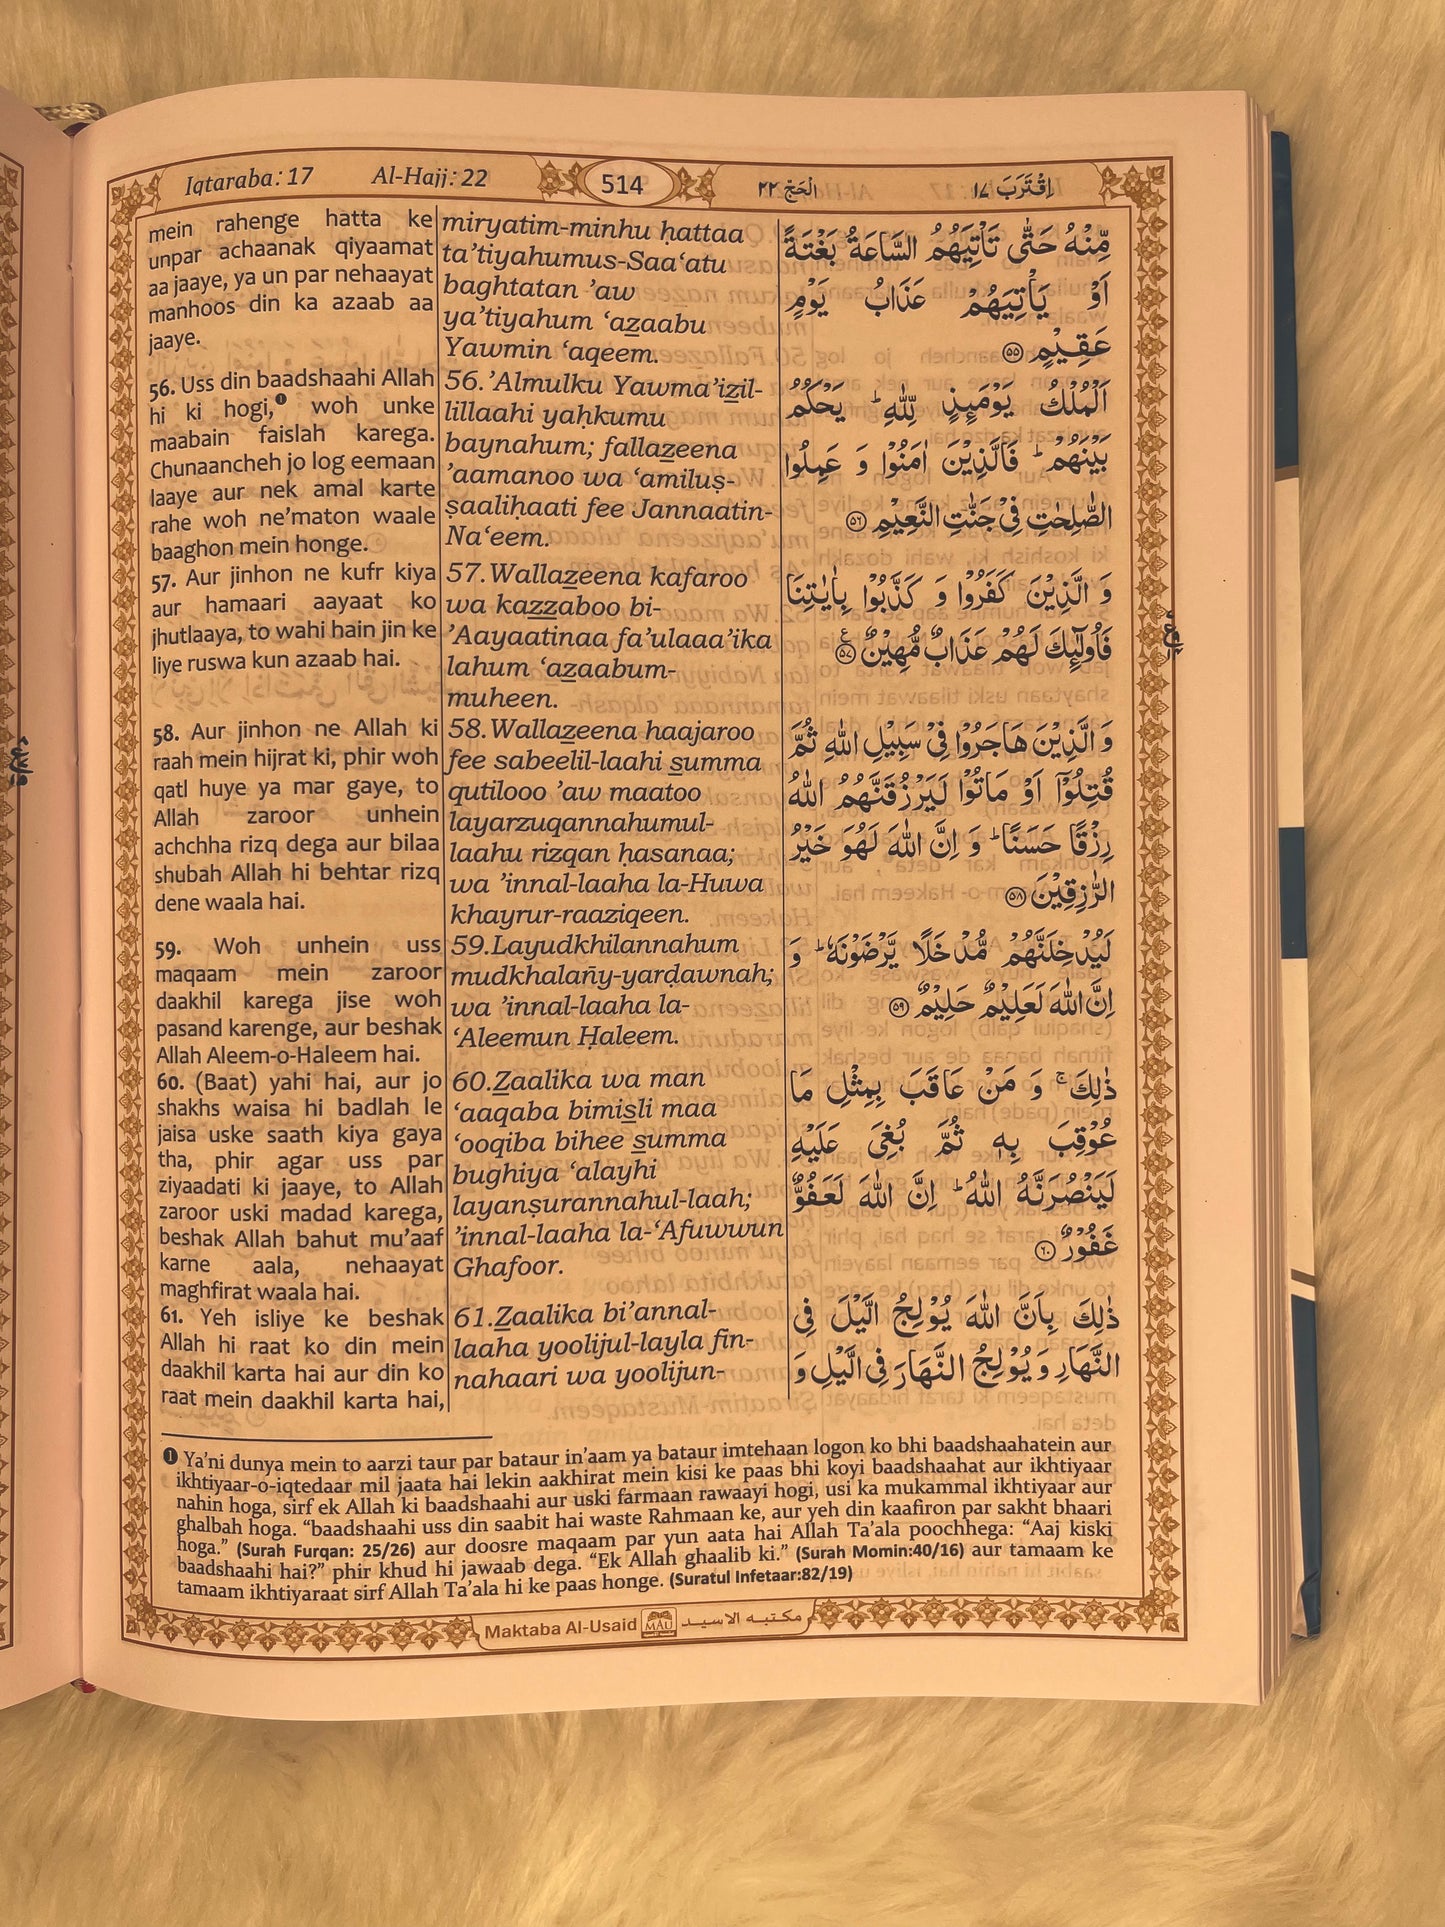 Iqtaraba: 17 Al-Hajj: 22 514 الْحَجّ ٢٢ اِقْتَرَبَ ١٧
mein rahenge hatta ke
unpar achaanak qiyaamat
aa jaaye, ya un par nehaayat
manhoos din ka azaab aa
jaaye.
56. Uss din baadshaahi Allah
hi ki hogi,❶ woh unke
maabain faislah karega.
Chunaancheh jo log eemaan
laaye aur nek amal karte
rahe woh ne’maton waale
baaghon mein honge.
57. Aur jinhon ne kufr kiya
aur hamaari aayaat ko
jhutlaaya, to wahi hain jin ke
liye ruswa kun azaab hai.
58. Aur jinhon ne Allah ki
raah mein hijrat ki, phir woh
qatl huye ya mar gaye, to
Allah zaroor unhein
achchha rizq dega aur bilaa
shubah Allah hi behtar rizq
dene waala hai.
59. Woh unhein uss
maqaam mein zaroor
daakhil karega jise woh
pasand karenge, aur beshak
Allah Aleem-o-Haleem hai.
60. (Baat) yahi hai, aur jo
shakhs waisa hi badlah le
jaisa uske saath kiya gaya
tha, phir agar uss par
ziyaadati ki jaaye, to Allah
zaroor uski madad karega,
beshak Allah bahut mu’aaf
karne aala, nehaayat
maghfirat waala hai.
61. Yeh isliye ke beshak
Allah hi raat ko din mein
daakhil karta hai aur din ko
raat mein daakhil karta hai,
miryatim-minhu ḥattaa
ta’tiyahumus-Saa‘atu
baghtatan ’aw
ya’tiyahum ‘az̲aabu
Yawmin ‘aqeem.
56.’Almulku Yawma’iz̲il-
lillaahi yaḥkumu
baynahum; fallaz̲eena
’aamanoo wa ‘amiluṣ-
ṣaaliḥaati fee Jannaatin-
Na‘eem.
57.Wallaz̲eena kafaroo
wa kaz̲z̲aboo bi-
’Aayaatinaa fa’ulaaa’ika
lahum ‘az̲aabum-
muheen.
58.Wallaz̲eena haajaroo
fee sabeelil-laahi s̲umma
qutilooo ’aw maatoo
layarzuqannahumul-
laahu rizqan ḥasanaa;
wa ’innal-laaha la-Huwa
khayrur-raaziqeen.
59.Layudkhilannahum
mudkhalañy-yarḍawnah;
wa ’innal-laaha la-
‘Aleemun Ḥaleem.
60.Z̲aalika wa man
‘aaqaba bimis̲li maa
‘ooqiba bihee s̲umma
bughiya ‘alayhi
layanṣurannahul-laah;
’innal-laaha la-‘Afuwwun
Ghafoor.
61.Z̲aalika bi’annal-
laaha yoolijul-layla fin-
nahaari wa yoolijun-
مِّنْهُ حَتّٰى تَاْتِيَهُمُ السَّاعَةُ بَغْتَةً
اَوْ يَاْتِيَهُمْ عَذَابُ يَوْمٍ
عَقِيْمٍ ۝٥٥
اَلْمُلْكُ يَوْمَىِٕذٍ لِّلّٰهِ ؕ يَحْكُمُ
بَيْنَهُمْ ؕ فَالَّذِيْنَ اٰمَنُوْا وَ عَمِلُوا
الصّٰلِحٰتِ فِيْ جَنّٰتِ النَّعِيْمِ ۝٥٦
وَ الَّذِيْنَ كَفَرُوْا وَ كَذَّبُوْا بِاٰيٰتِنَا
فَاُولٰٓىِٕكَ لَهُمْ عَذَابٌ مُّهِيْنٌ ۝٥٧ۧ
وَ الَّذِيْنَ هَاجَرُوْا فِيْ سَبِيْلِ اللّٰهِ ثُمَّ
قُتِلُوْۤا اَوْ مَاتُوْا لَيَرْزُقَنَّهُمُ اللّٰهُ
رِزْقًا حَسَنًا ؕ وَ اِنَّ اللّٰهَ لَهُوَ خَيْرُ
الرّٰزِقِيْنَ ۝٥٨
لَيُدْخِلَنَّهُمْ مُّدْخَلًا يَّرْضَوْنَهٗ ؕ وَ
اِنَّ اللّٰهَ لَعَلِيْمٌ حَلِيْمٌ ۝٥٩
ذٰلِكَ ۚ وَ مَنْ عَاقَبَ بِمِثْلِ مَا
عُوْقِبَ بِهٖ ثُمَّ بُغِيَ عَلَيْهِ
لَيَنْصُرَنَّهُ اللّٰهُ ؕ اِنَّ اللّٰهَ لَعَفُوٌّ
غَفُوْرٌ ۝٦٠
ذٰلِكَ بِاَنَّ اللّٰهَ يُوْلِجُ الَّيْلَ فِي
النَّهَارِ وَ يُوْلِجُ النَّهَارَ فِي الَّيْلِ وَ
❶ Ya’ni dunya mein to aarzi taur par bataur in’aam ya bataur imtehaan logon ko bhi baadshaahatein aur
ikhtiyaar-o-iqtedaar mil jaata hai lekin aakhirat mein kisi ke paas bhi koyi baadshaahat aur ikhtiyaar
nahin hoga, sirf ek Allah ki baadshaahi aur uski farmaan rawaayi hogi, usi ka mukammal ikhtiyaar aur
ghalbah hoga. “baadshaahi uss din saabit hai waste Rahmaan ke, aur yeh din kaafiron par sakht bhaari
hoga.” (Surah Furqan: 25/26) aur doosre maqaam par yun aata hai Allah Ta’ala poochhega: “Aaj kiski
baadshaahi hai?” phir khud hi jawaab dega. “Ek Allah ghaalib ki.” (Surah Momin:40/16) aur tamaam ke
tamaam ikhtiyaraat sirf Allah Ta’ala hi ke paas honge. (Suratul Infetaar:82/19)
Maktaba Al-Usaid MAU مكتبه الاسيد